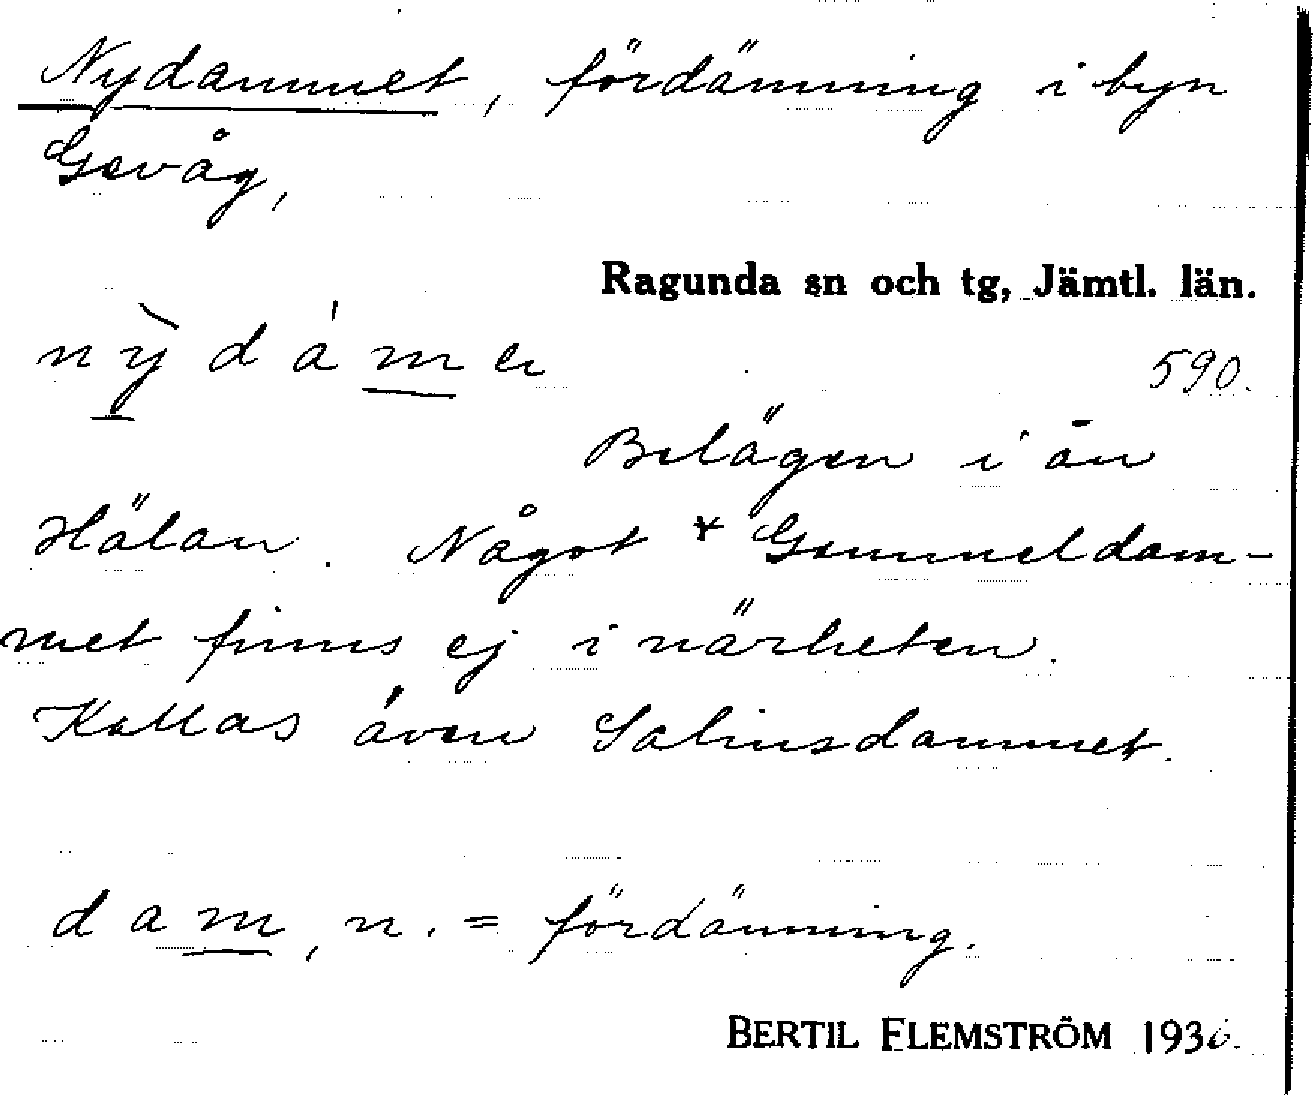 Nydammet, fördämning i byn
Gevåg,
Ragunda sn och tg, Jämtl. län.
nỳdáme
590.
Belägen i ån
Hälan. Något * Gammeldam-
met finns ej i närheten.
Kallas även Salinsdammet.
dam, n. = fördämning.
BERTIL FLEMSTRÖM 1936.